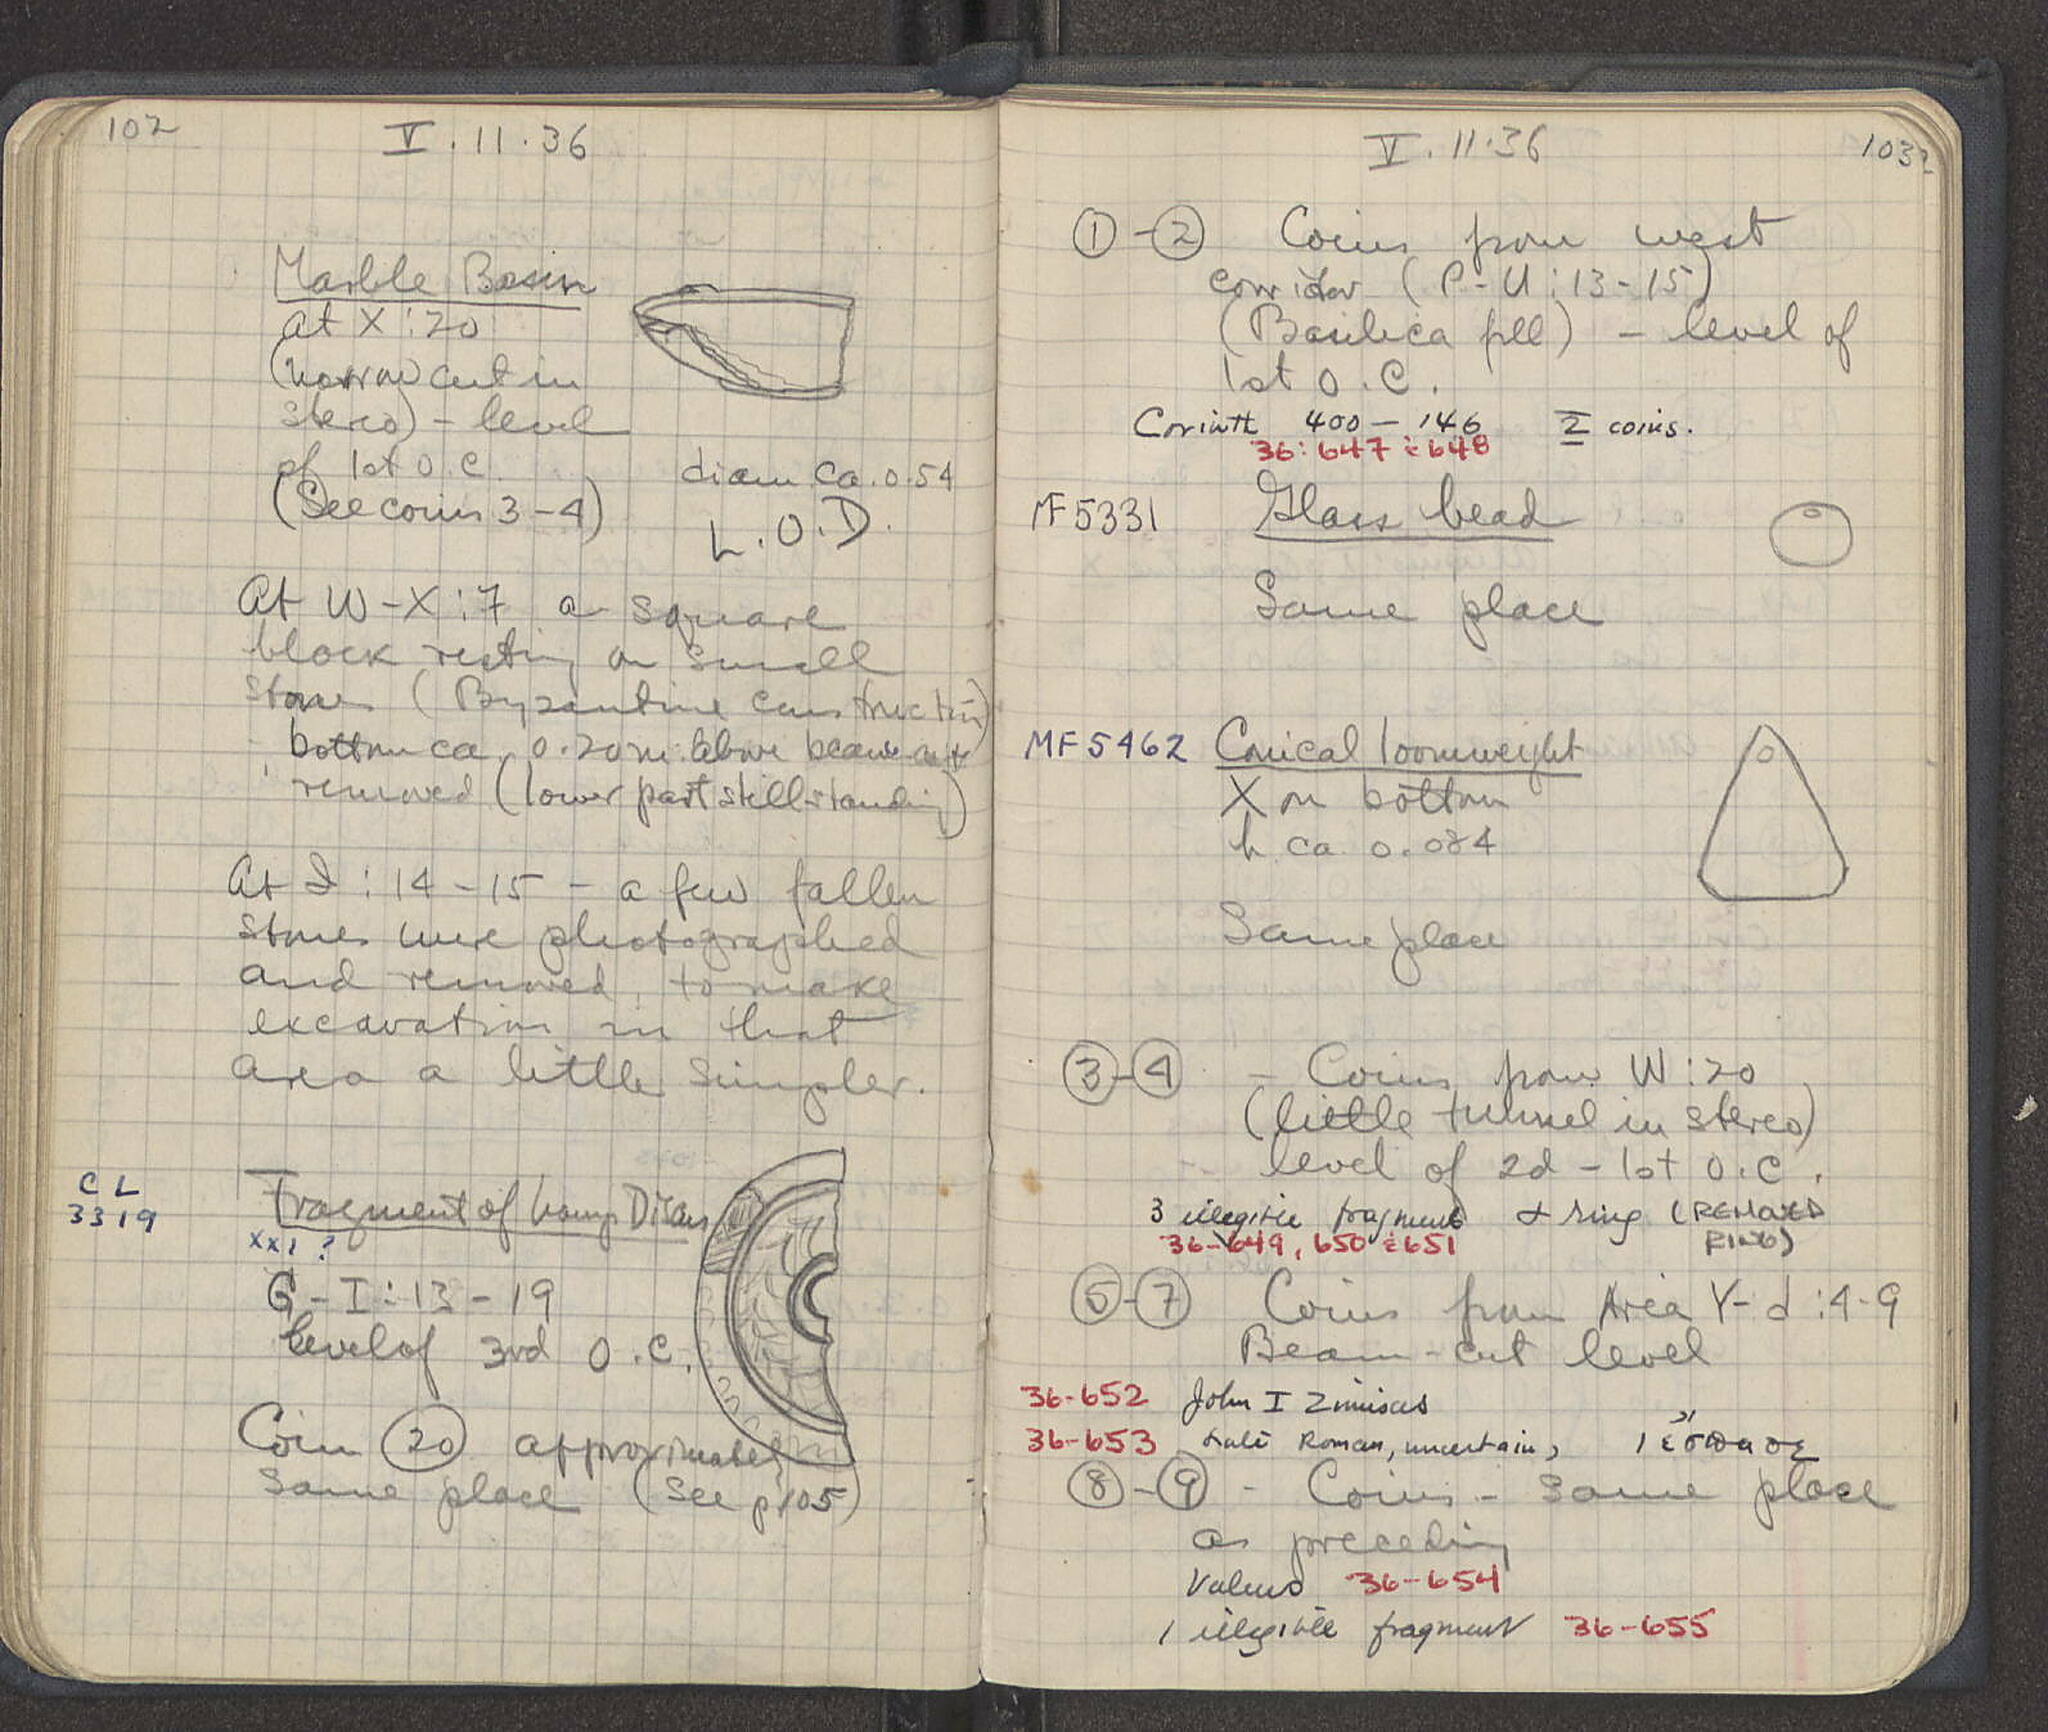 102
V. 11. 36
Marble Basin
at X:20
(narrow cut in
stereo) - level
of 1st O.C.
(See coins 3-4)
diam ca. 0.54
L.O.D.
At W-X:7 a square
block resting on small
stones (Byzantine construction)
bottom ca. 0.20 m. above beam-cut
removed (lower part still standing)
At I:14-15 - a few fallen
stones were photographed
and removed, to make
excavation in that
area a little simpler.
CL
3319
Fragment of Lamp Discus
XXI ?
G-I:13-19
level of 3rd O.C.
Coin 20 approximately
same place (See p 105)
V. 11. 36
103
1 - 2 Coins from west
corridor (P-U:13-15)
(Basilica fill) - level of
1st O.C.
Corinth 400-146 2 coins.
36: 647 & 648
MF 5331 Glass bead
Same place
MF 5462 Conical loomweight
X on bottom
h ca 0.084
Same place
3-4 - Coins from W:20
(little tunnel in stereo)
level of 2d - 1st O.C.
3 illegible fragments & ring (REMOVED
RING)
36-649, 650 & 651
5-7 Coins from Area Y-d:4-9
Beam-cut level
36-652 John I Zimisces
36-653 Late Roman, uncertain,
8-9 - Coins - same place
as preceding
Valens 36-654
1 illegible fragment 36-655